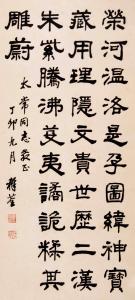 榮河溫洛是孕圖緯神寶
藏用理隱文貴世歷二漢
朱紫騰沸芟夷譎詭糅其
雕蔚
太常同志教正
丁卯九月 穉荃